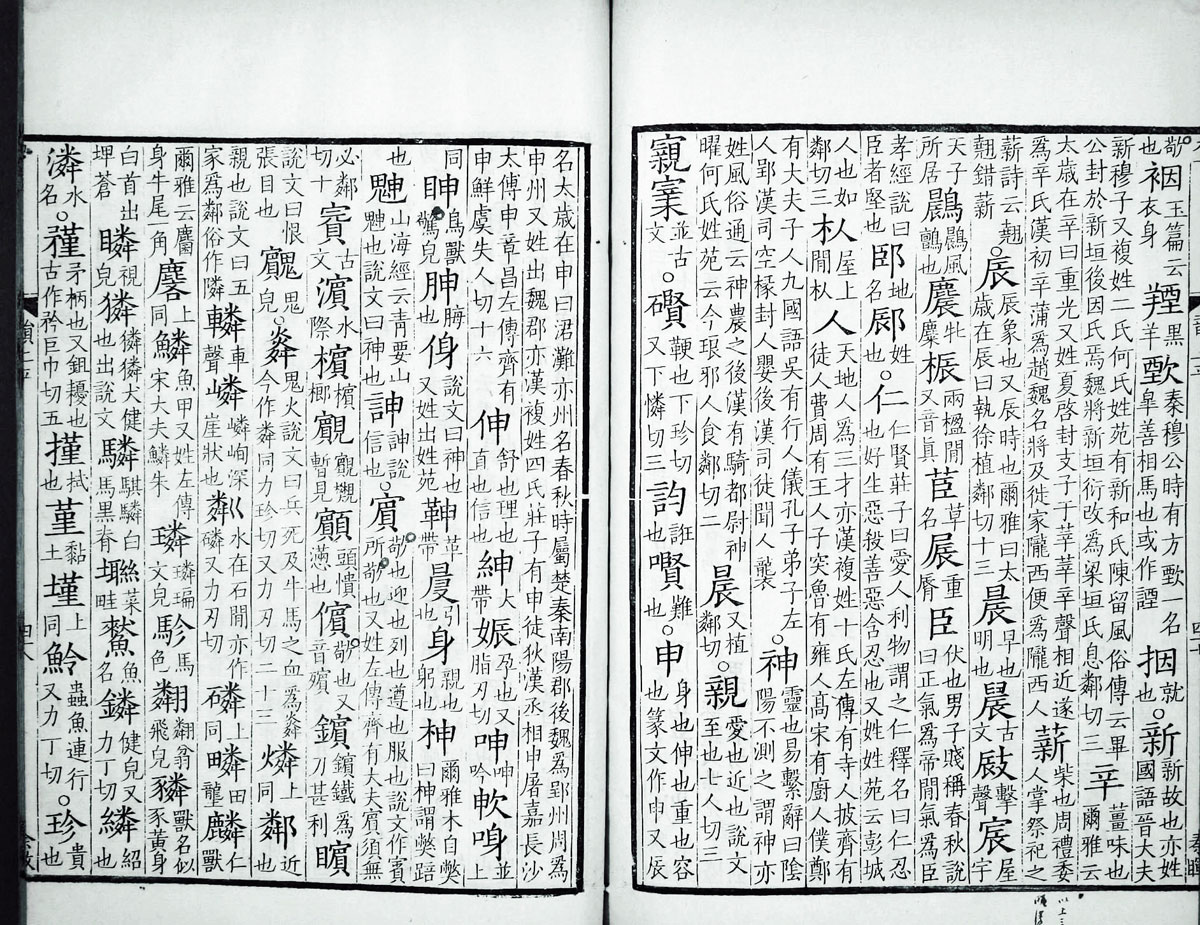 也 玉篇云衣身 黑羊 歅 秦穆公時有方歅一名皐善相馬也或作諲 㧢 就也。新 新故也亦姓國語晉大夫
新穆子又複姓二氏何氏姓苑有新和氏陳留風俗傳云畢公封於新垣後因氏焉魏將新垣衍改爲梁垣氏息鄰切三 辛 薑味也爾雅云
太歲在辛曰重光又姓夏啓封支子于莘莘辛聲相近遂爲辛氏漢初辛蒲爲趙魏名將及徙家隴西便爲隴西人 薪 柴也周禮委人掌祭祀之
薪詩云翹翹錯薪。辰 辰象也又辰時也爾雅曰太歲在辰曰執徐植鄰切十三 晨 早也明也 古文 敐 擊聲 宸 屋宇
天子所居 鷐 鷐風鸇也 麎 牝麋 桭 兩楹閒又音眞 茞 草名 屒 重脣 臣 伏也男子賤稱春秋說曰正氣爲帝閒氣爲臣
孝經說曰臣者堅也 地名 姓。仁 仁賢莊子曰愛人利物謂之仁釋名曰仁忍也好生惡殺善惡含忍也又姓姓苑云彭城
人也如鄰切三 朲 屋上閒朲 人 天地人爲三才亦漢複姓十氏左傳有寺人披齊有徒人費周有王人子突魯有雍人高宋有廚人僕鄭
有大夫子人九國語吳有行人儀孔子弟子左人郢漢司空掾封人嬰後漢司徒聞人襲。神 靈也易繫辭曰陰陽不測之謂神亦
姓風俗通云神農之後漢有騎都尉神曜何氏姓苑云今琅邪人食鄰切二 晨 又植鄰切。親 愛也近也說文至也七人切三
寴 並古文。礥 鞕也下珍切又下憐切三 誑也 難也。申 身也伸也重也容也篆文作申又辰
名太歲在申曰涒灘亦州名春秋時屬楚秦南陽郡後魏爲郢州周爲申州又姓出魏郡亦漢複姓四氏莊子有申徒狄漢丞相申屠嘉長沙
太傅申章昌左傳齊有申鮮虞失人切十六 伸 舒也理也直也信也 紳 大帶 娠 孕也又脂刃切 呻 呻吟 並上
同 眒 鳥獸驚皃 胂 脢 說文曰神也又姓出姓苑 革帶 引也 身 親也躬也 柛 爾雅木自獘曰柛謂獘踣
也 䰠 山海經云青要山䰠也說文曰神也 訷 訷說信也。賓 敬也迎也列也遵也服也說文作賓所敬也又姓左傳齊有大夫賓須無
必鄰切十 賔 古文 濱 水際 檳 檳榔 暫見 頭憒懣也 儐 敬也又音殯 鑌 鑌鐵爲刀甚利 矉
說文曰恨張目也 鬼皃。粦 鬼火說文曰兵死及牛馬之血爲粦今作粦同力珍切又力刃切二十三 燐 上同 鄰 近也
親也說文曰五家爲鄰俗作隣 轔 車聲 嶙 嶙峋深崖狀也 粼 水在石閒亦作磷又力刃切 磷 上同 疄 田壟 麟 仁獸
爾雅云麕身牛尾一角 麐 上同 鱗 魚甲又姓左傳宋大夫鱗朱 璘 璘㻞文皃 駗 馬色 翷 翷翁飛皃 獸名似豕黃身
白首出埤蒼 瞵 視皃 獜 獜獜犬健也出說文 驎 騏驎白馬黑脊 菜畦 魚名 鏻 健皃又力丁切 繗 紹也
潾 水名。矛柄也又鉏櫌也古作矜巨巾切五 拭也 堇 黏土 墐 上同 魿 蟲魚連行又力丁切。珍 貴也